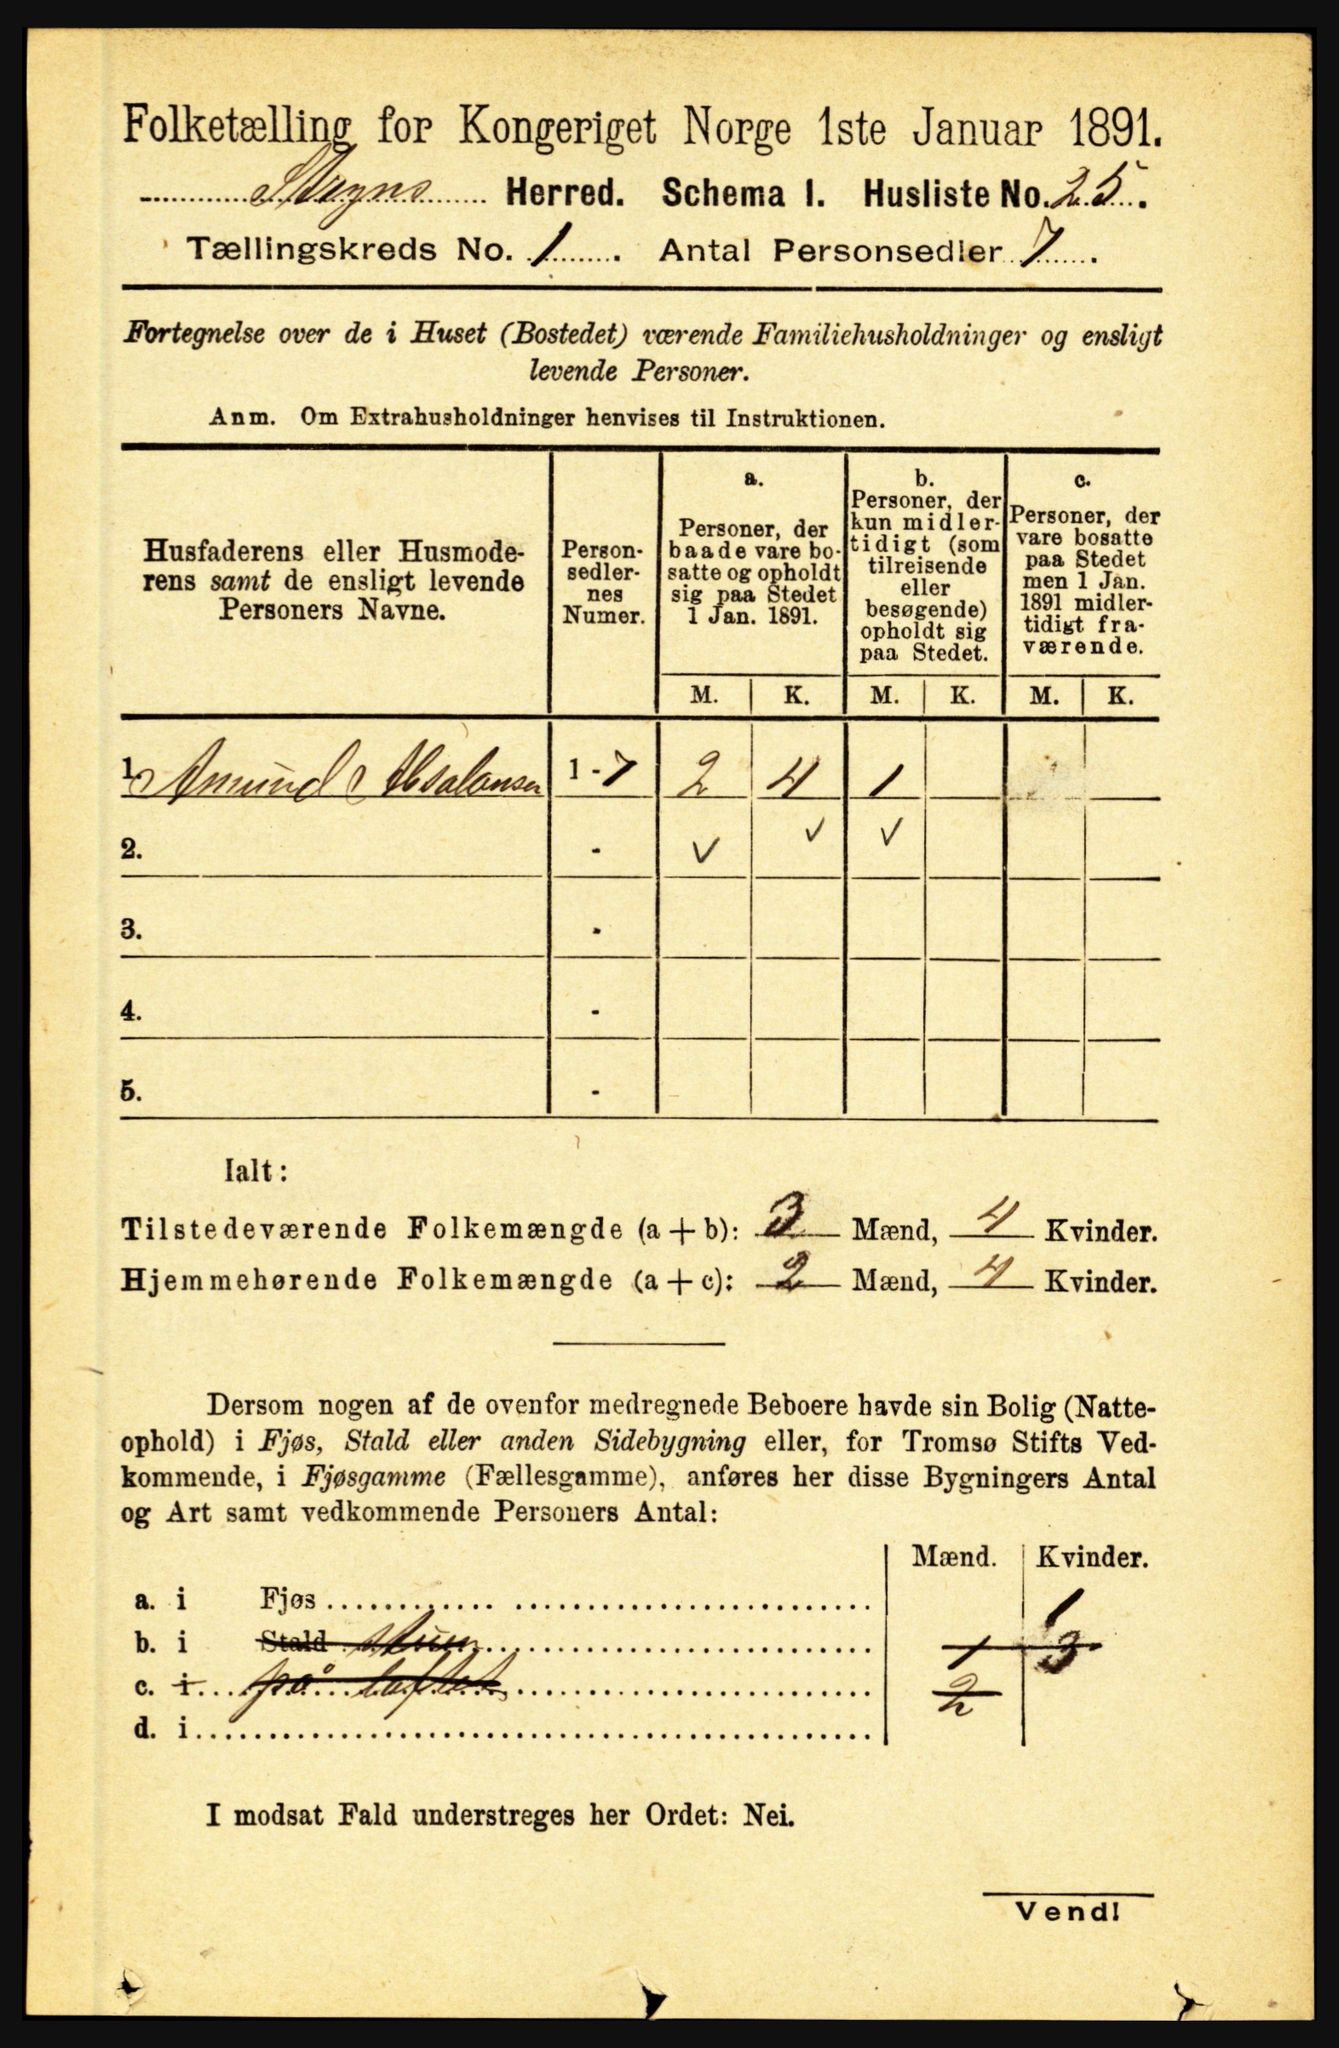 Folketælling for Kongeriget Norge 1ste Januar 1891.
Stryns Herred. Schema I. Husliste No. 25.
Tællingskreds No. 1. Antal Personsedler 7.
Fortegnelse over de i Huset (Bostedet) værende Familiehusholdninger og ensligt
levende Personer.
Anm. Om Extrahusholdninger henvises til Instruktionen.
Husfaderens eller Husmode-
rens samt de ensligt levende
Personers Navne.
Person-
sedler-
nes
Numer.
a.
Personer, der
baade vare bo-
satte og opholdt
sig paa Stedet
1 Jan. 1891.
b.
Personer, der
kun midler-
tidigt (som
tilreisende
eller
besøgende)
opholdt sig
paa Stedet.
c.
Personer, der
vare bosatte
paa Stedet
men 1 Jan.
1891 midler-
tidigt fra-
værende.
M. K. M. K. M. K.
1. Amund Absalonsen 1-7 2 4 1
2. - ✓ ✓ ✓
3. -
4. -
5. -
Ialt:
Tilstedeværende Folkemængde (a + b): 3 Mænd, 4 Kvinder.
Hjemmehørende Folkemængde (a + c): 2 Mænd, 4 Kvinder.
Dersom nogen af de ovenfor medregnede Beboere havde sin Bolig (Natte-
ophold) i Fjøs, Stald eller anden Sidebygning eller, for Tromsø Stifts Ved-
kommende, i Fjøsgamme (Fællesgamme), anføres her disse Bygningers Antal
og Art samt vedkommende Personers Antal:
Mænd. Kvinder.
a. i Fjøs 1
b. i Stald 1 3
c. i på loftet 2
d. i
I modsat Fald understreges her Ordet: Nei.
Vend!